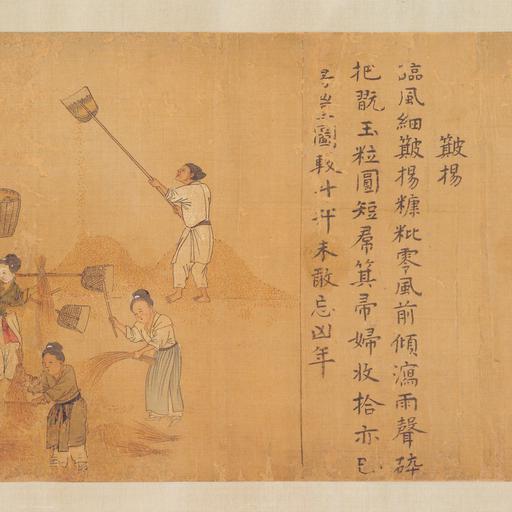 簸揚
臨風細簸揚糠粃零風前傾瀉雨聲碎
把翫玉粒圓短帬箕帚婦收拾亦已
專豈圖較斗升未敢忘凶年